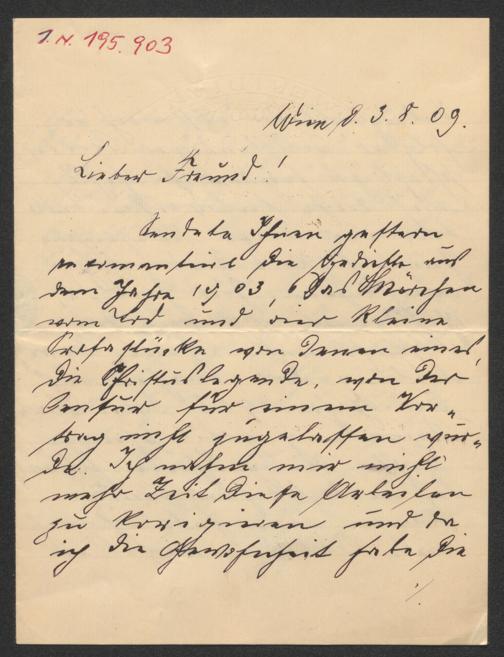 I. N. 195.903
Wien d. 3. 8. 09.
Lieber Freund!
Sendete Ihnen gestern
recomandirt die Gedichte aus
dem Jahre 1903, Das Märchen
vom Tod und vier kleine
Prosastücke von denen eines,
die Christuslegende, von der
Censur für einen Vor-
trag nicht zugelassen wur-
de. Ich nahm mir nicht
mehr Zeit diese Arbeiten
zu korigieren und da
ich die Gewohnheit habe die